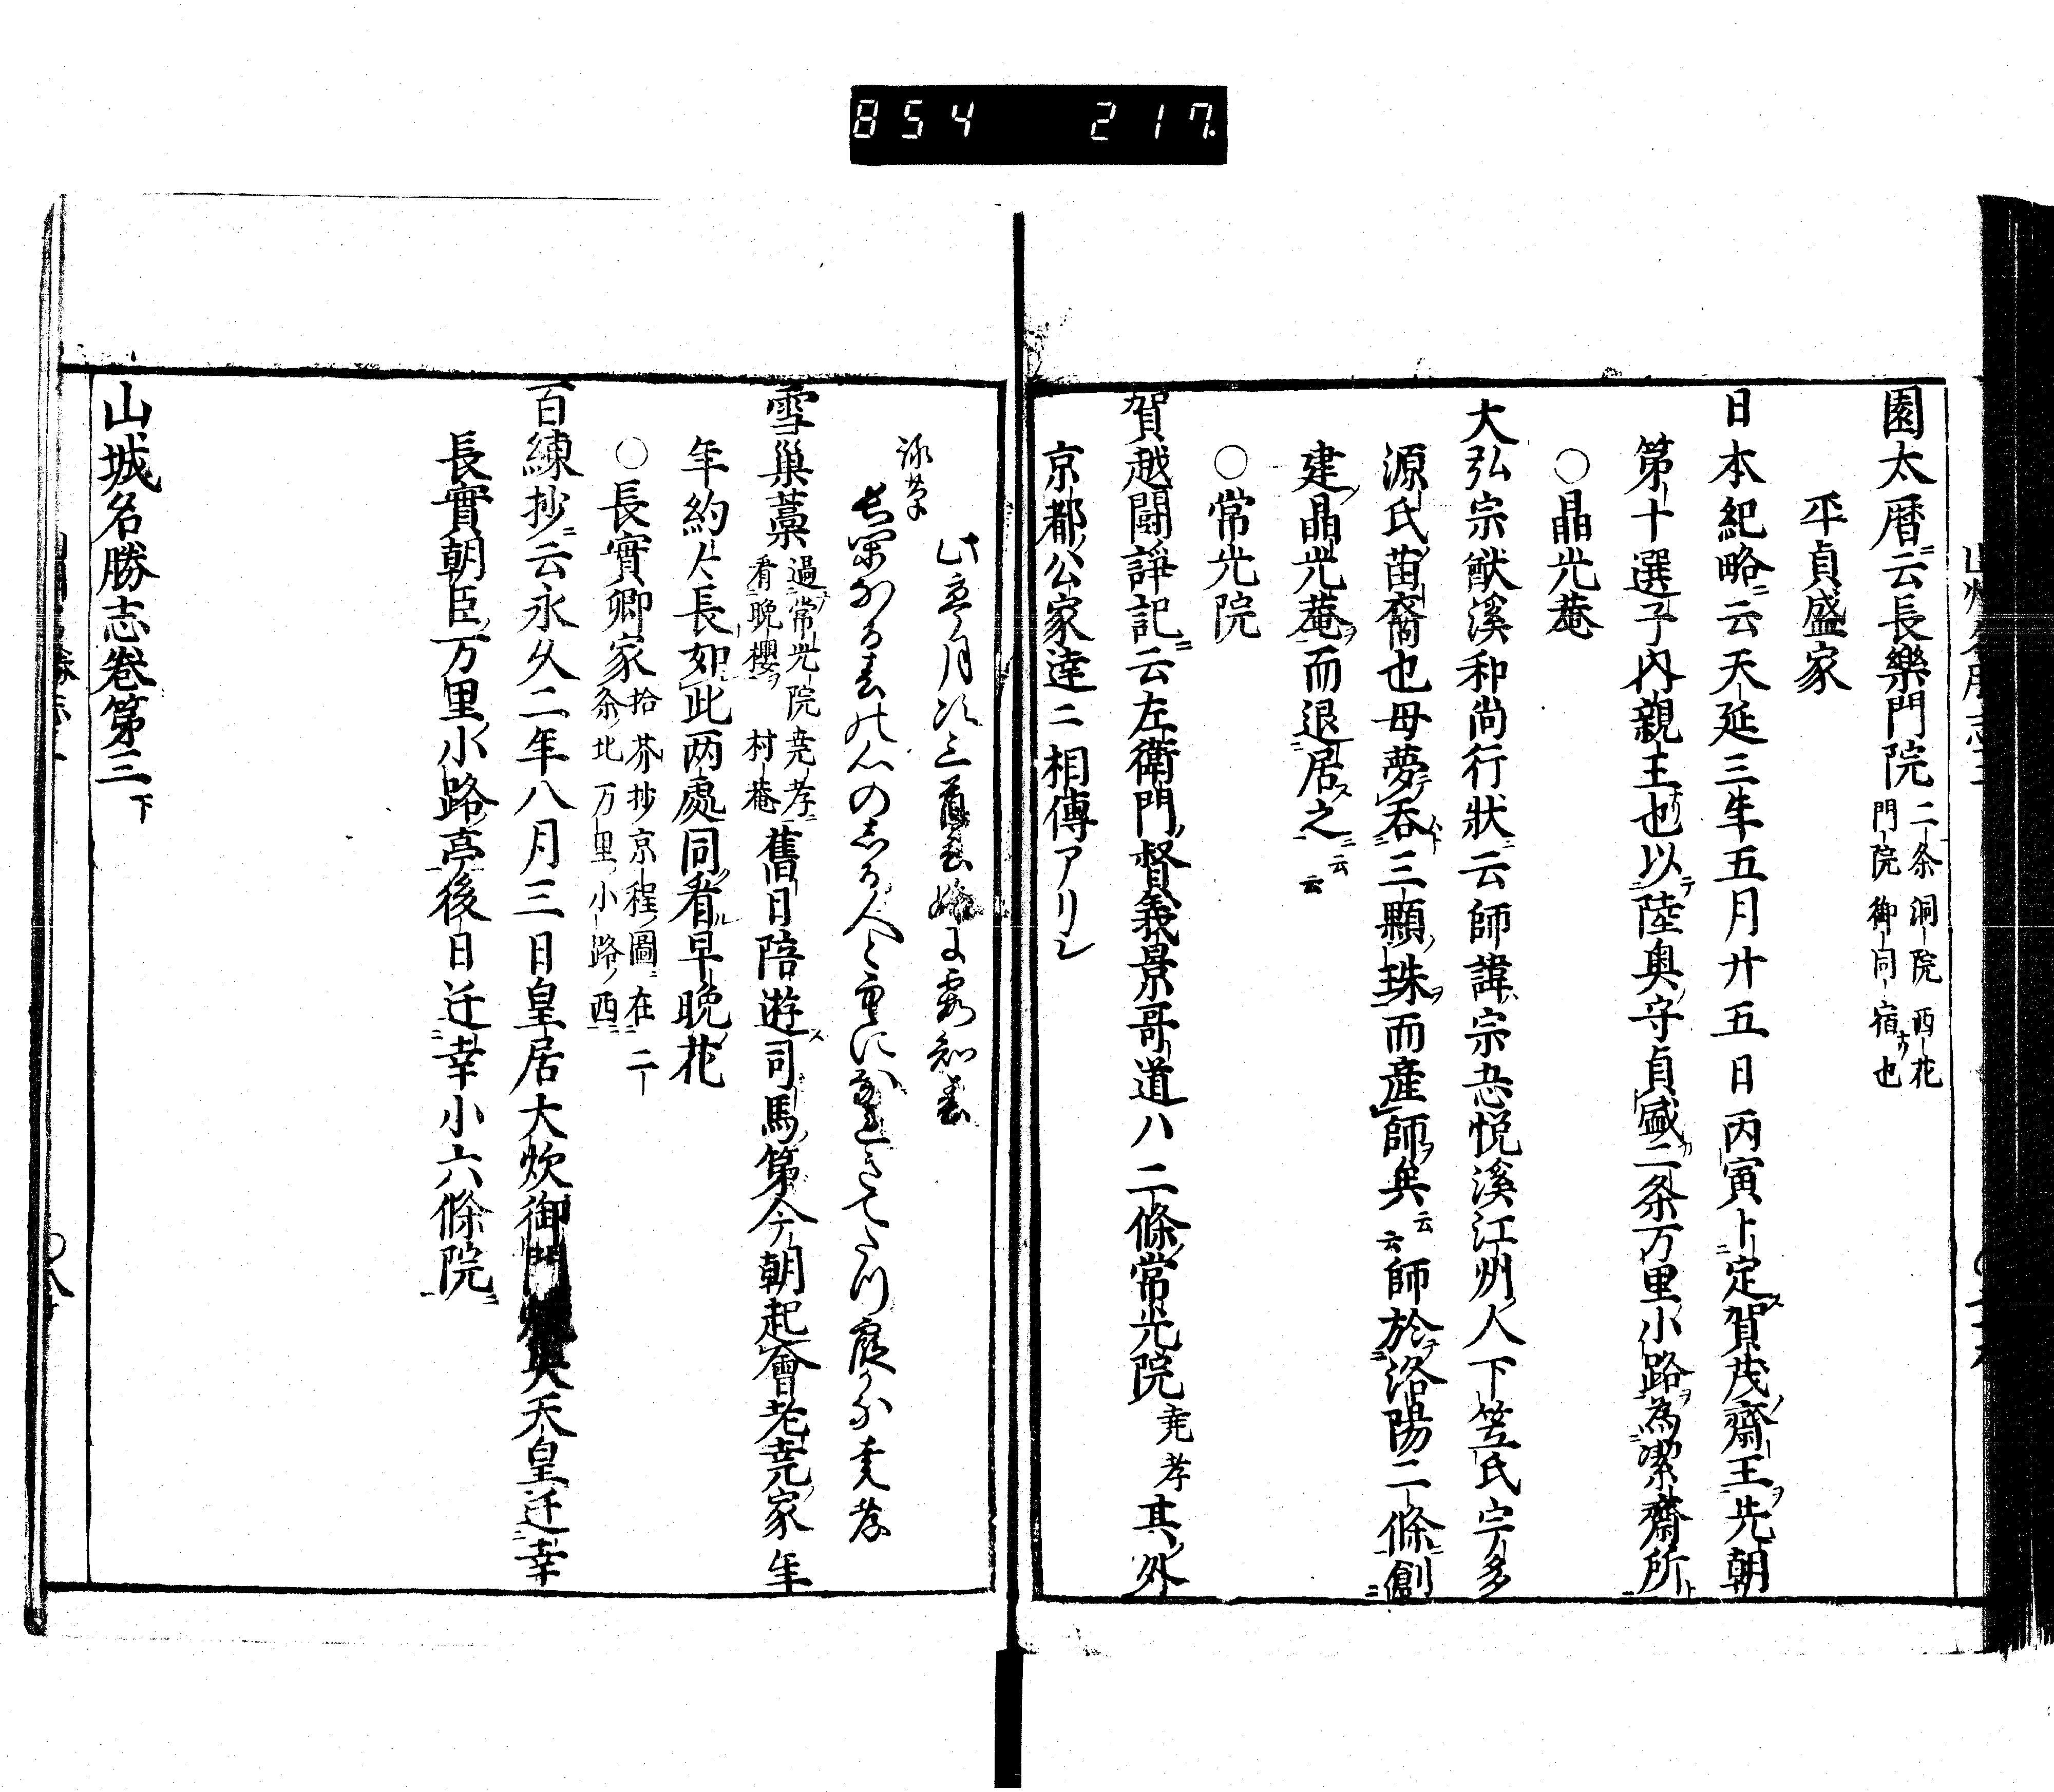 854 217
園太暦ニ云長樂門院二条洞院西花門院御同宿也
平貞盛家
日本紀略ニ云天延三年五月廿五日丙寅卜定賀茂齋王先朝
第十選子内親王也以陸奥守貞盛二条万里小路為潔齋所
○晶光菴
大弘宗猷溪和尚行狀云師諱宗忞悦溪江州人下笠氏宇多
源氏苗裔也母夢呑三顆珠而産師矣云云師於洛陽二條創
建晶光菴而退居之云云
○常光院
賀越闘諍記ニ云左衛門督義景哥道ハ二條常光院尭孝其外
京都ノ公家達ニ相傳アリシ
此亭月次三首
詠草
雪巢藁過常光院尭孝看晩櫻村菴舊日陪遊司馬第今朝起會老尭家年
年約久長如此两處同看早晩花
○長實卿家拾芥抄京程圖ニ在二条北万里小路西
百練抄ニ云永久二年八月三日皇居大炊御門天皇迁幸
長實朝臣万里小路亭後日迁幸小六條院
山城名勝志巻第三下